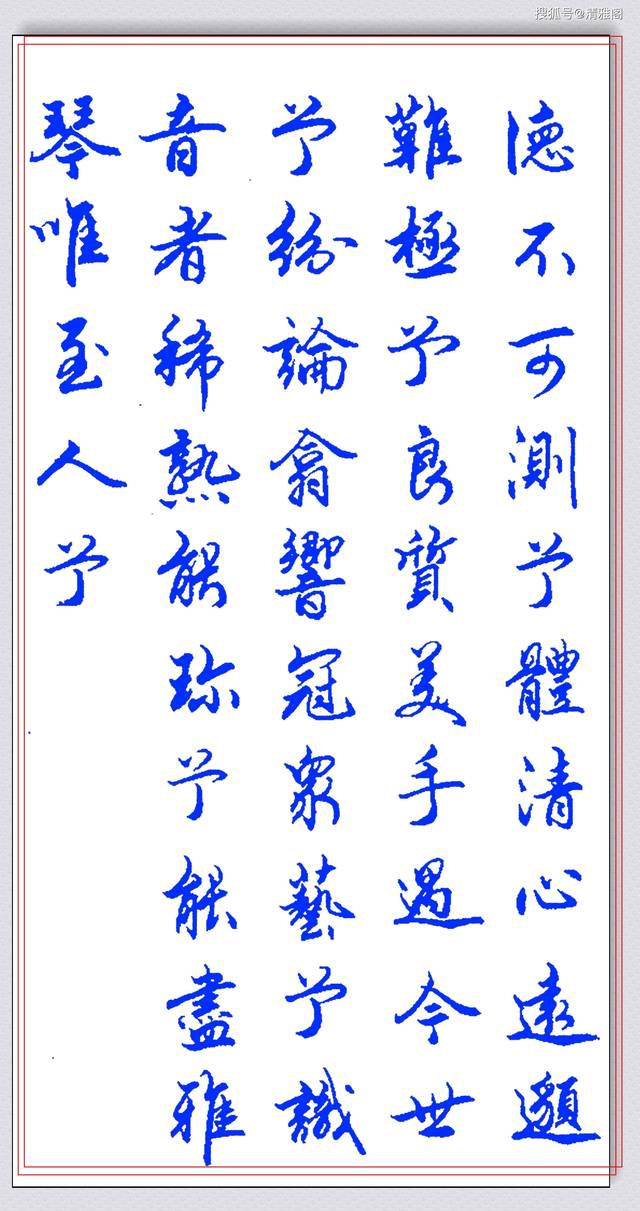 搜狐号@清雅阁
德不可測兮體清心遠邈
難極兮良質美手遇今世
兮紛論翕響冠眾藝兮識
音者稀熟能珍兮能盡雅
琴唯至人兮